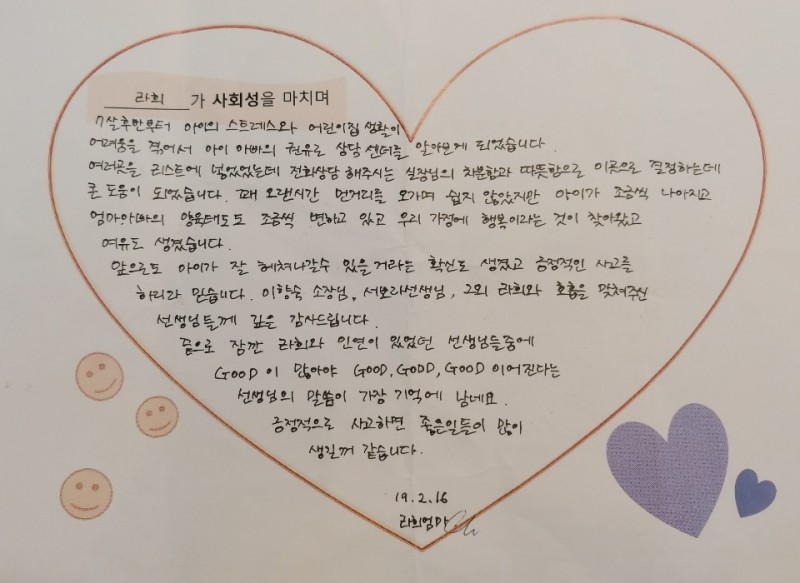 라희 가 사회성을 마치며
7살후반부터 아이의 스트레스와 어린이집 생활이
어려움을 겪어서 아이 아빠의 권유로 상담 센터를 알아보게 되었습니다.
여러곳을 리스트에 넣었었는데 전화상담 해주시는 실장님의 차분함과 따뜻함으로 이곳으로 결정하는데
큰 도움이 되었습니다. 꽤 오랜시간 먼거리를 오가며 쉽지 않았지만 아이가 조금씩 나아지고
엄마.아빠의 양육태도도 조금씩 변하고 있고 우리 가정에 행복이라는 것이 찾아왔고
여유도 생겼습니다.
앞으로도 아이가 잘 헤쳐나갈수 있을거라는 확신도 생겼고 긍정적인 사고를
하리라 믿습니다. 이향숙 소장님, 서보라선생님, 그외 라희와 호흡을 맞춰주신
선생님들께 깊은 감사드립니다.
끝으로 잠깐 라희와 인연이 있었던 선생님들중에
GOOD이 많아야 GOOD, GOOD, GOOD 이어진다는
선생님의 말씀이 가장 기억에 남네요.
긍정적으로 사고하면 좋은일들이 많이
생길꺼 같습니다.
19.2.16
라희엄마